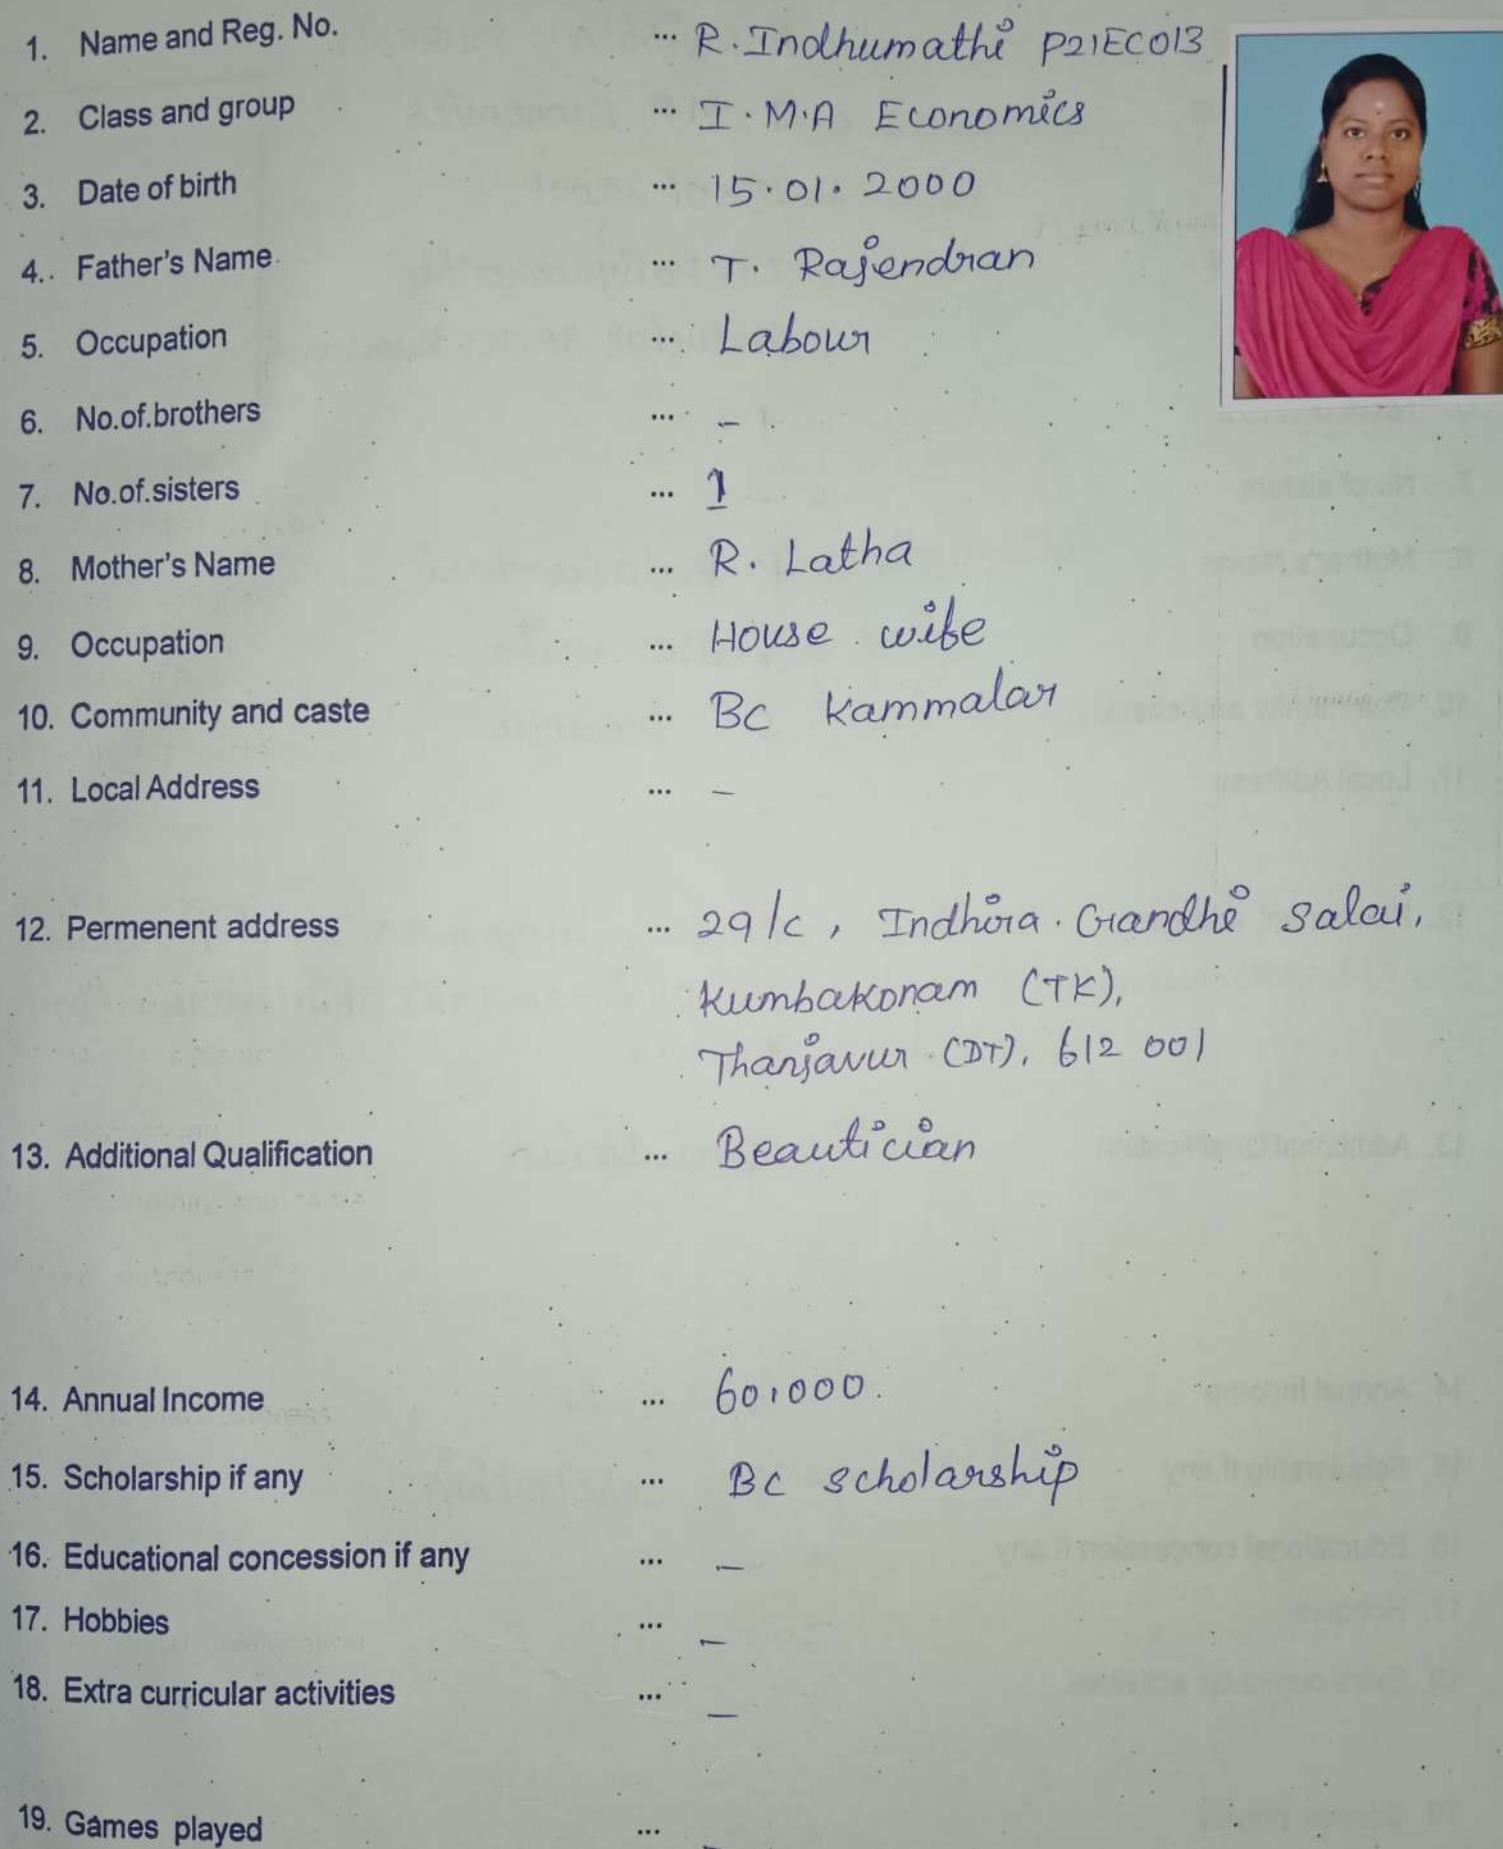 1. Name and Reg. No. ... R. Indhumathi P21EC013
2. Class and group ... I. M.A Economics
3. Date of birth ... 15.01.2000
4. Father's Name ... T. Rajendran
5. Occupation ... Labour
6. No.of.brothers ... –
7. No.of.sisters ... 1
8. Mother's Name ... R. Latha
9. Occupation ... House wife
10. Community and caste ... BC Kammalar
11. Local Address ... –
12. Permenent address ... 29/c, Indhira Gandhi Salai,
Kumbakonam (TK),
Thanjavur (DT), 612 001
13. Additional Qualification ... Beautician
14. Annual Income ... 60,000.
15. Scholarship if any ... BC scholarship
16. Educational concession if any ... –
17. Hobbies ... –
18. Extra curricular activities ... –
19. Games played ...